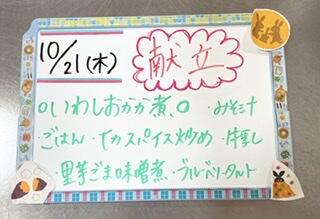 10/21(木) 献立
○いわしおかか煮○ ・みそ汁
・ごはん ・イカスパイス炒め ・牛乳
・里芋ごま味噌煮 ・ブルーベリータルト